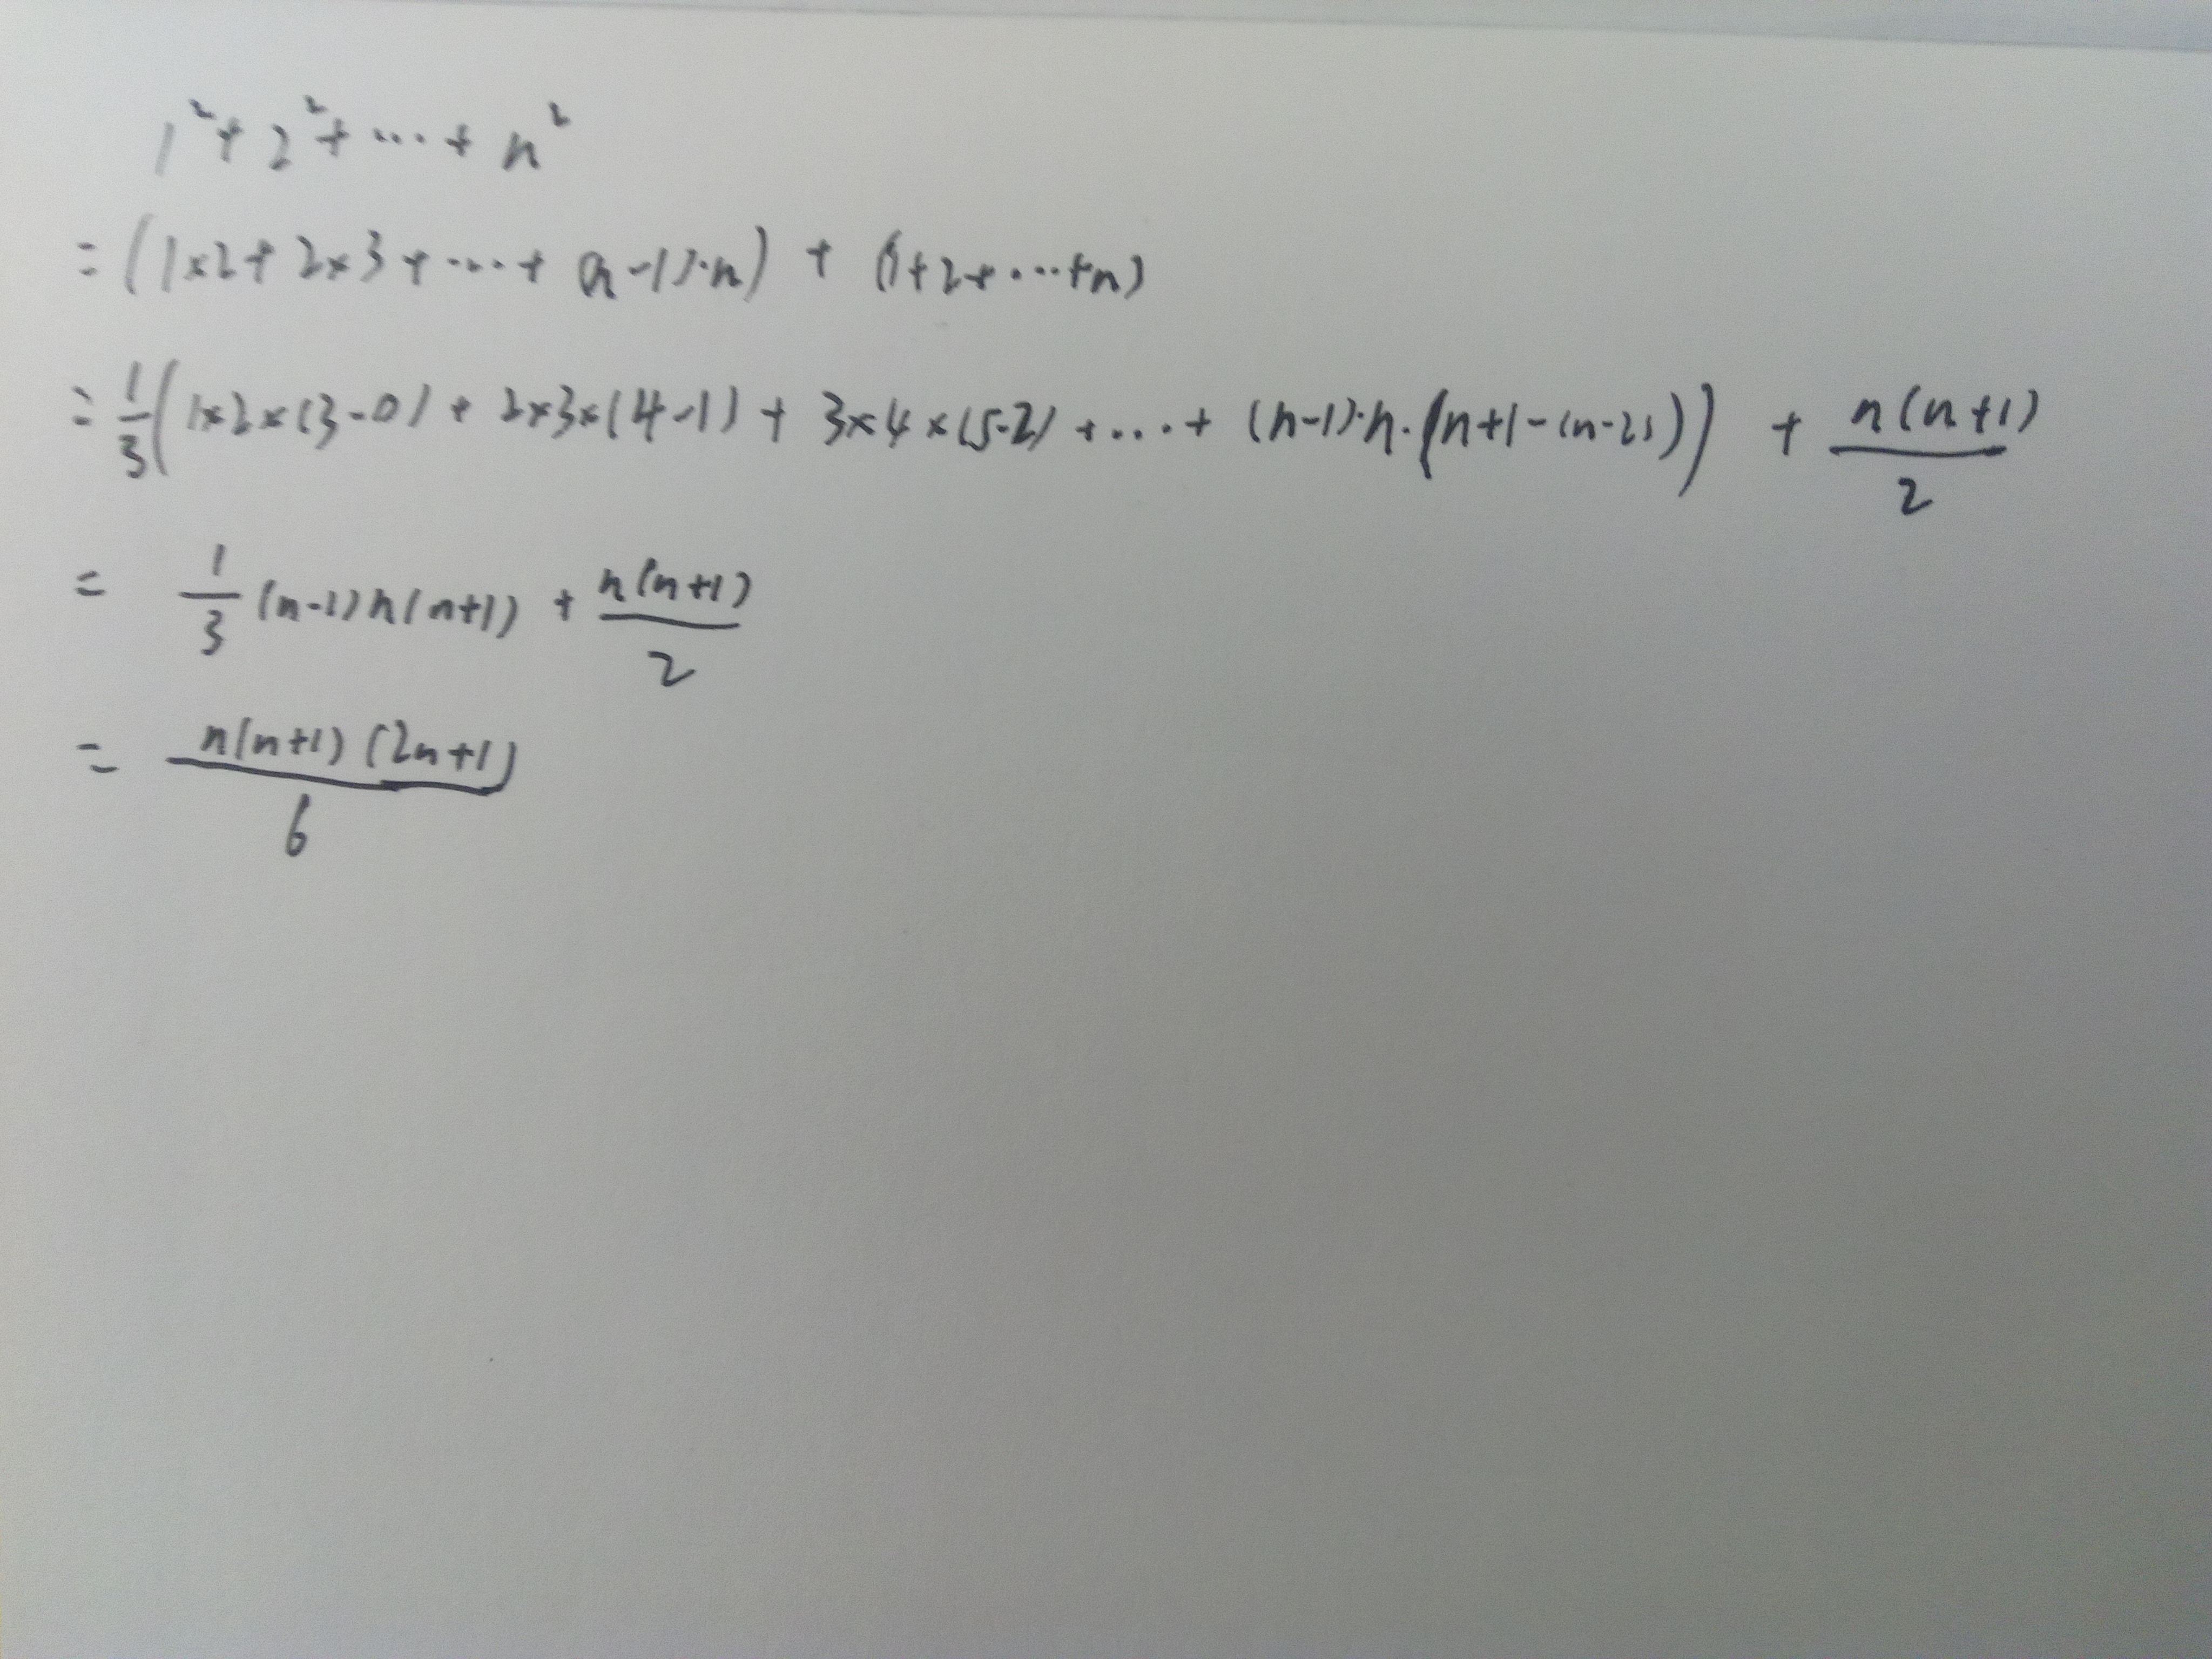 1²+2²+⋯+n²
=(1×2+2×3+⋯+(n-1)·n)+(1+2+⋯+n)
=1/3(1×2×(3-0)+2×3×(4-1)+3×4×(5-2)+⋯+(n-1)·n·(n+1-(n-2)))+n(n+1)/2
=1/3(n-1)n(n+1)+n(n+1)/2
=n(n+1)(2n+1)/6